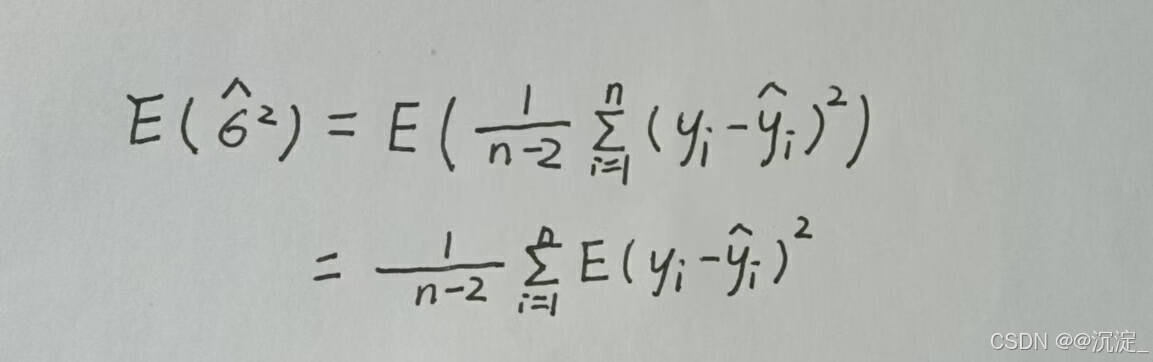 E(σ̂²) = E(1/(n-2) Σ_{i=1}^{n} (y_i - ŷ_i)²)
= 1/(n-2) Σ_{i=1}^{n} E(y_i - ŷ_i)²
CSDN @@沉淀_